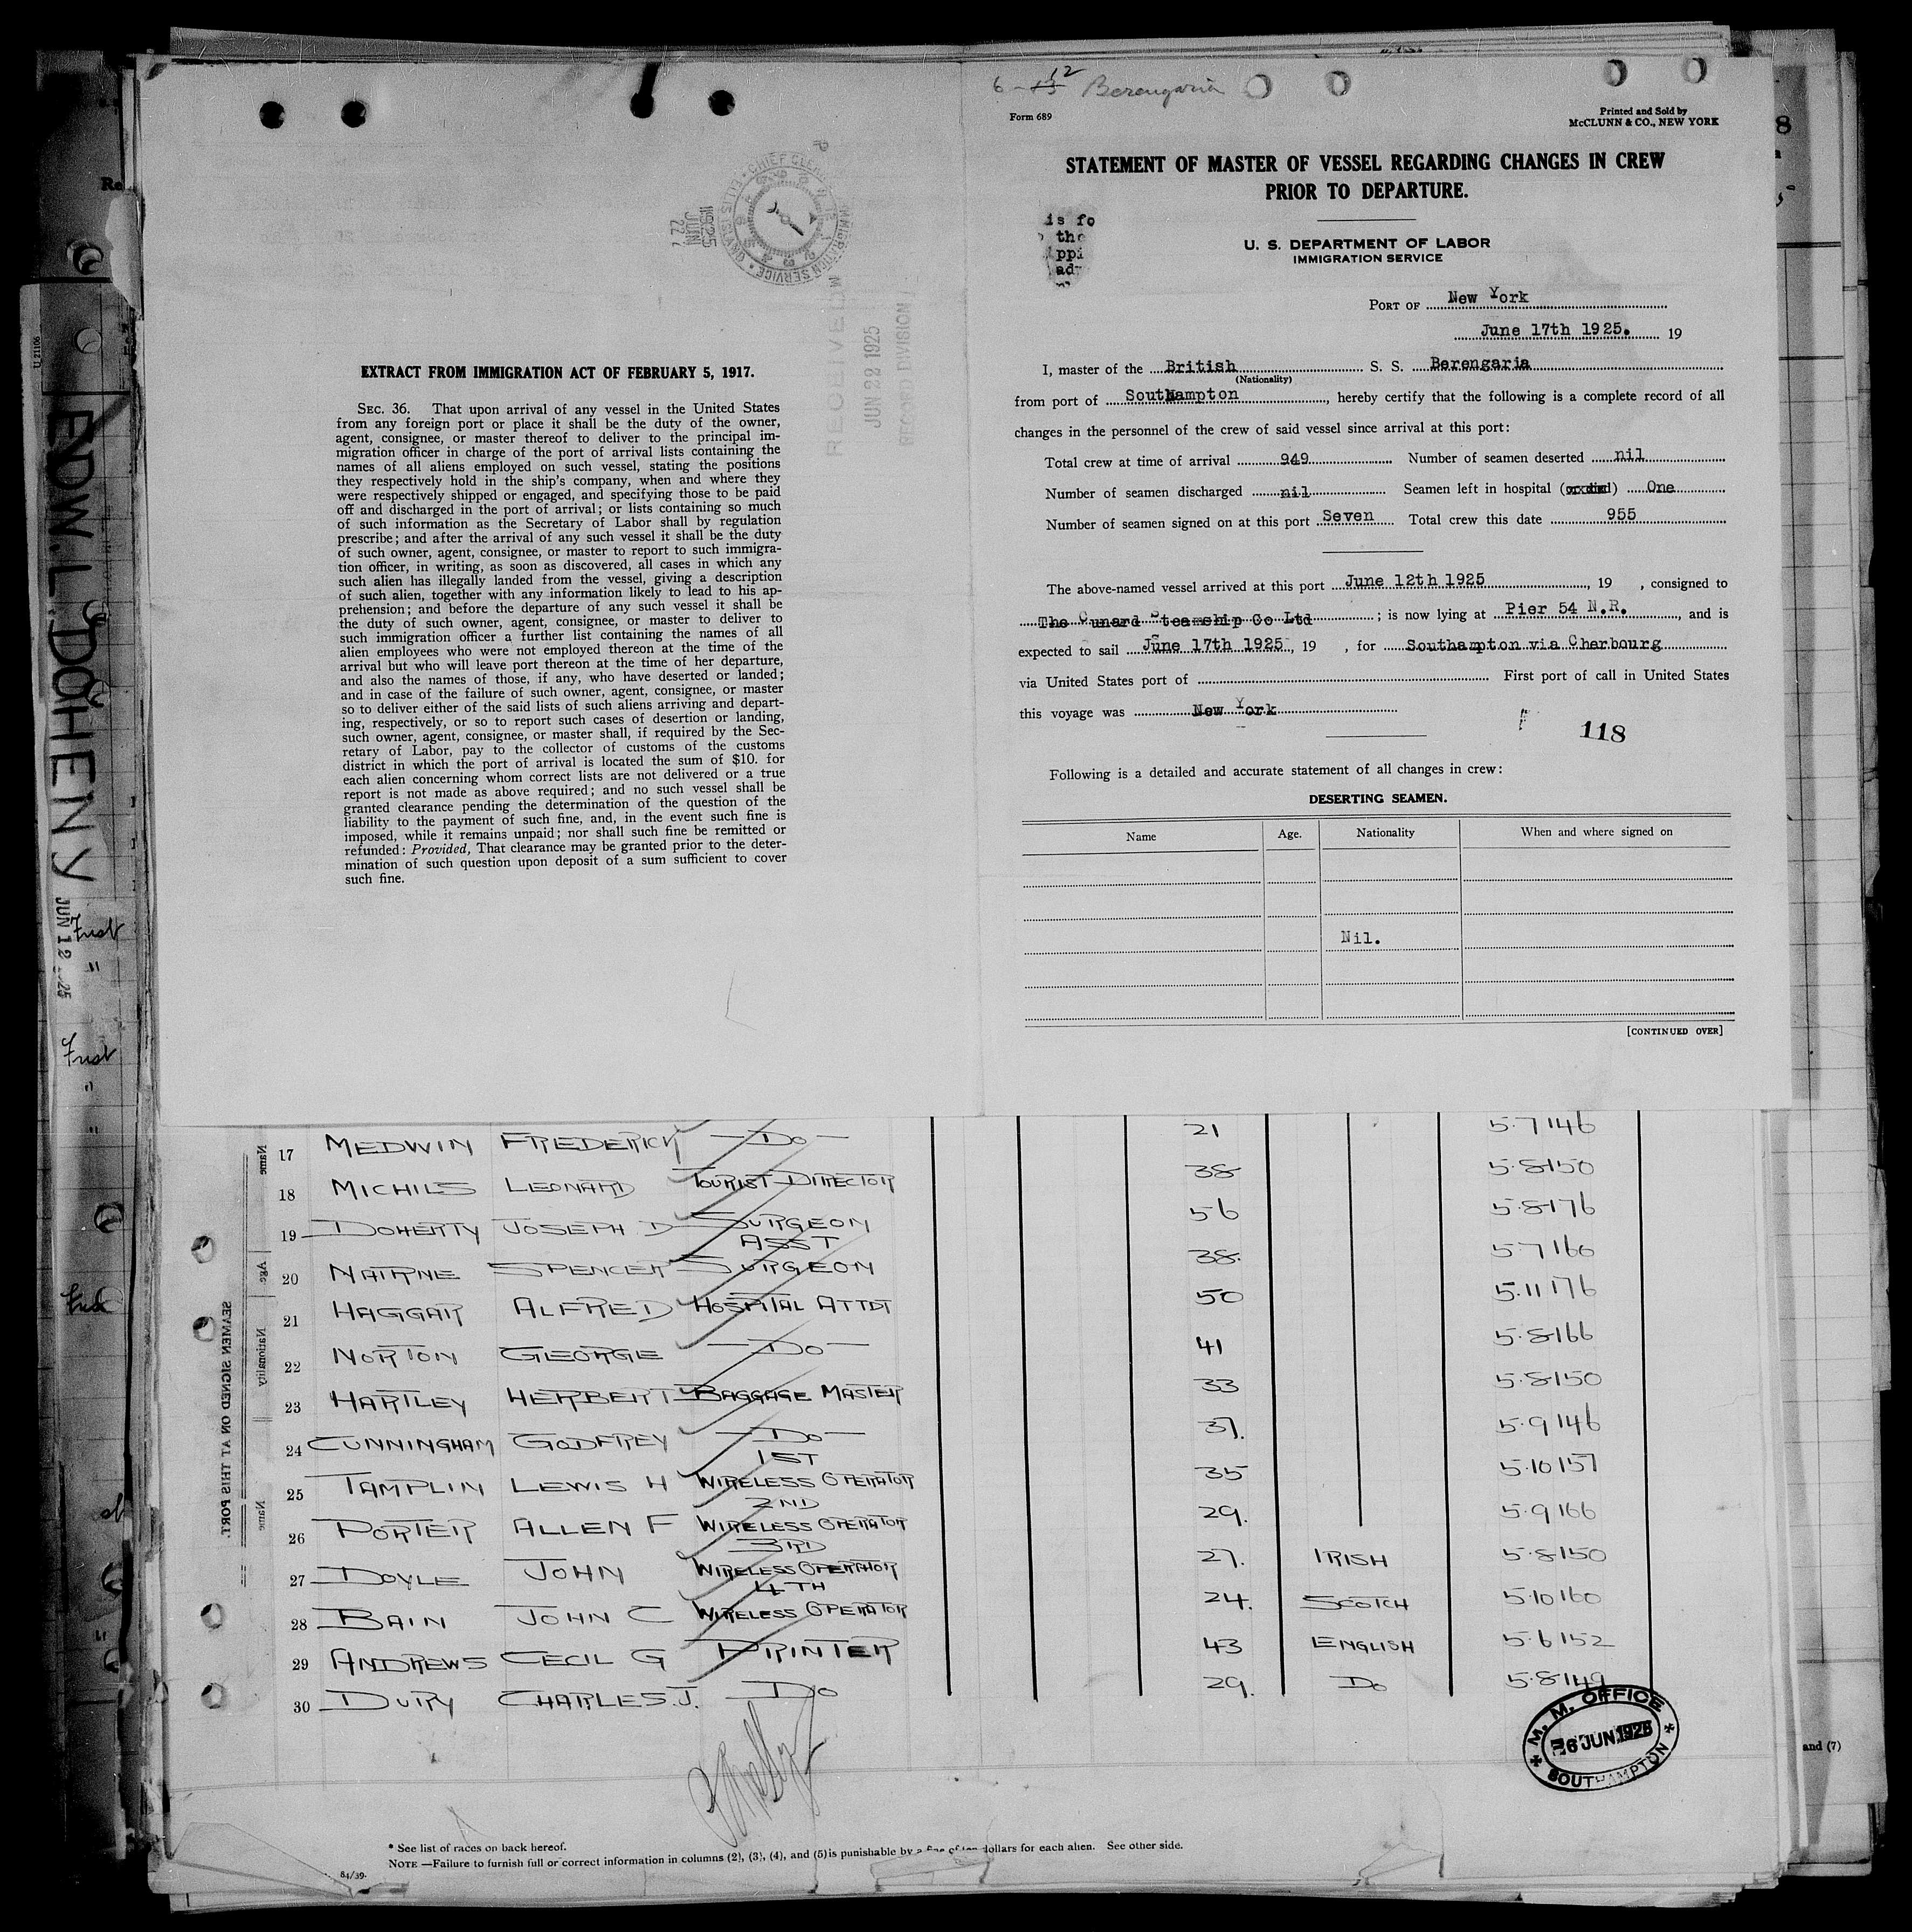 6 - 13 12 Berengaria
Form 689
Printed and Sold by
McCLUNN & CO., NEW YORK
STATEMENT OF MASTER OF VESSEL REGARDING CHANGES IN CREW
PRIOR TO DEPARTURE.
U. S. DEPARTMENT OF LABOR
IMMIGRATION SERVICE
PORT OF New York
June 17th 1925. 19
I, master of the British S. S. Berengaria
(Nationality)
from port of Southampton, hereby certify that the following is a complete record of all
changes in the personnel of the crew of said vessel since arrival at this port:
Total crew at time of arrival 949 Number of seamen deserted nil
Number of seamen discharged nil Seamen left in hospital (or died) One
Number of seamen signed on at this port Seven Total crew this date 955
The above-named vessel arrived at this port June 12th 1925, 19 , consigned to
The Cunard Steamship Co Ltd ; is now lying at Pier 54 N.R., and is
expected to sail June 17th 1925, 19 , for Southampton via Cherbourg
via United States port of First port of call in United States
this voyage was New York
118
Following is a detailed and accurate statement of all changes in crew:
DESERTING SEAMEN.
Name Age. Nationality When and where signed on
Nil.
[CONTINUED OVER]
1925 JUN 22
CHIEF CLERK IMMIGRATION SERVICE ELLIS ISLAND
RECEIVED
JUN 22 1925
RECORD DIVISION
EXTRACT FROM IMMIGRATION ACT OF FEBRUARY 5, 1917.
SEC. 36. That upon arrival of any vessel in the United States
from any foreign port or place it shall be the duty of the owner,
agent, consignee, or master thereof to deliver to the principal im-
migration officer in charge of the port of arrival lists containing the
names of all aliens employed on such vessel, stating the positions
they respectively hold in the ship's company, when and where they
were respectively shipped or engaged, and specifying those to be paid
off and discharged in the port of arrival; or lists containing so much
of such information as the Secretary of Labor shall by regulation
prescribe; and after the arrival of any such vessel it shall be the duty
of such owner, agent, consignee, or master to report to such immigra-
tion officer, in writing, as soon as discovered, all cases in which any
such alien has illegally landed from the vessel, giving a description
of such alien, together with any information likely to lead to his ap-
prehension; and before the departure of any such vessel it shall be
the duty of such owner, agent, consignee, or master to deliver to
such immigration officer a further list containing the names of all
alien employees who were not employed thereon at the time of the
arrival but who will leave port thereon at the time of her departure,
and also the names of those, if any, who have deserted or landed;
and in case of the failure of such owner, agent, consignee, or master
so to deliver either of the said lists of such aliens arriving and depart-
ing, respectively, or so to report such cases of desertion or landing,
such owner, agent, consignee, or master shall, if required by the Sec-
retary of Labor, pay to the collector of customs of the customs
district in which the port of arrival is located the sum of $10. for
each alien concerning whom correct lists are not delivered or a true
report is not made as above required; and no such vessel shall be
granted clearance pending the determination of the question of the
liability to the payment of such fine, and, in the event such fine is
imposed, while it remains unpaid; nor shall such fine be remitted or
refunded: Provided, That clearance may be granted prior to the deter-
mination of such question upon deposit of a sum sufficient to cover
such fine.
U 21106
EDW. L. DOHENY
JUN 12 1925
17 MEDWIN FREDERICK — DO — 21 5.7 146
18 MICHILS LEONARD TOURIST DIRECTOR 38 5.8 150
19 DOHERTY JOSEPH D SURGEON 56 5.8 176
20 NAIRNE SPENCER ASST SURGEON 38. 5.7 166
21 HAGGAR ALFRED HOSPITAL ATTDT 50 5.11 176
22 NORTON GEORGE — DO — 41 5.8 166
23 HARTLEY HERBERT BAGGAGE MASTER 33 5.8 150
24 CUNNINGHAM GODFREY — DO — 37. 5.9 146
25 TAMPLIN LEWIS H 1ST WIRELESS OPERATOR 35 5.10 157
26 PORTER ALLEN F 2ND WIRELESS OPERATOR 29. 5.9 166
27 DOYLE JOHN 3RD WIRELESS OPERATOR 27. IRISH 5.8 150
28 BAIN JOHN C 4TH WIRELESS OPERATOR 24. SCOTCH 5.10 160
29 ANDREWS CECIL G PRINTER 43 ENGLISH 5.6 152
30 DURY CHARLES.J. DO 29. DO 5.8 149
SEAMEN SIGNED ON AT THIS PORT.
Name Age Nationality Name
M. M. OFFICE
6 JUN 1925
SOUTHAMPTON
and (7)
* See list of races on back hereof.
NOTE —Failure to furnish full or correct information in columns (2), (3), (4), and (5) is punishable by a fine of ten dollars for each alien. See other side.
84/39.